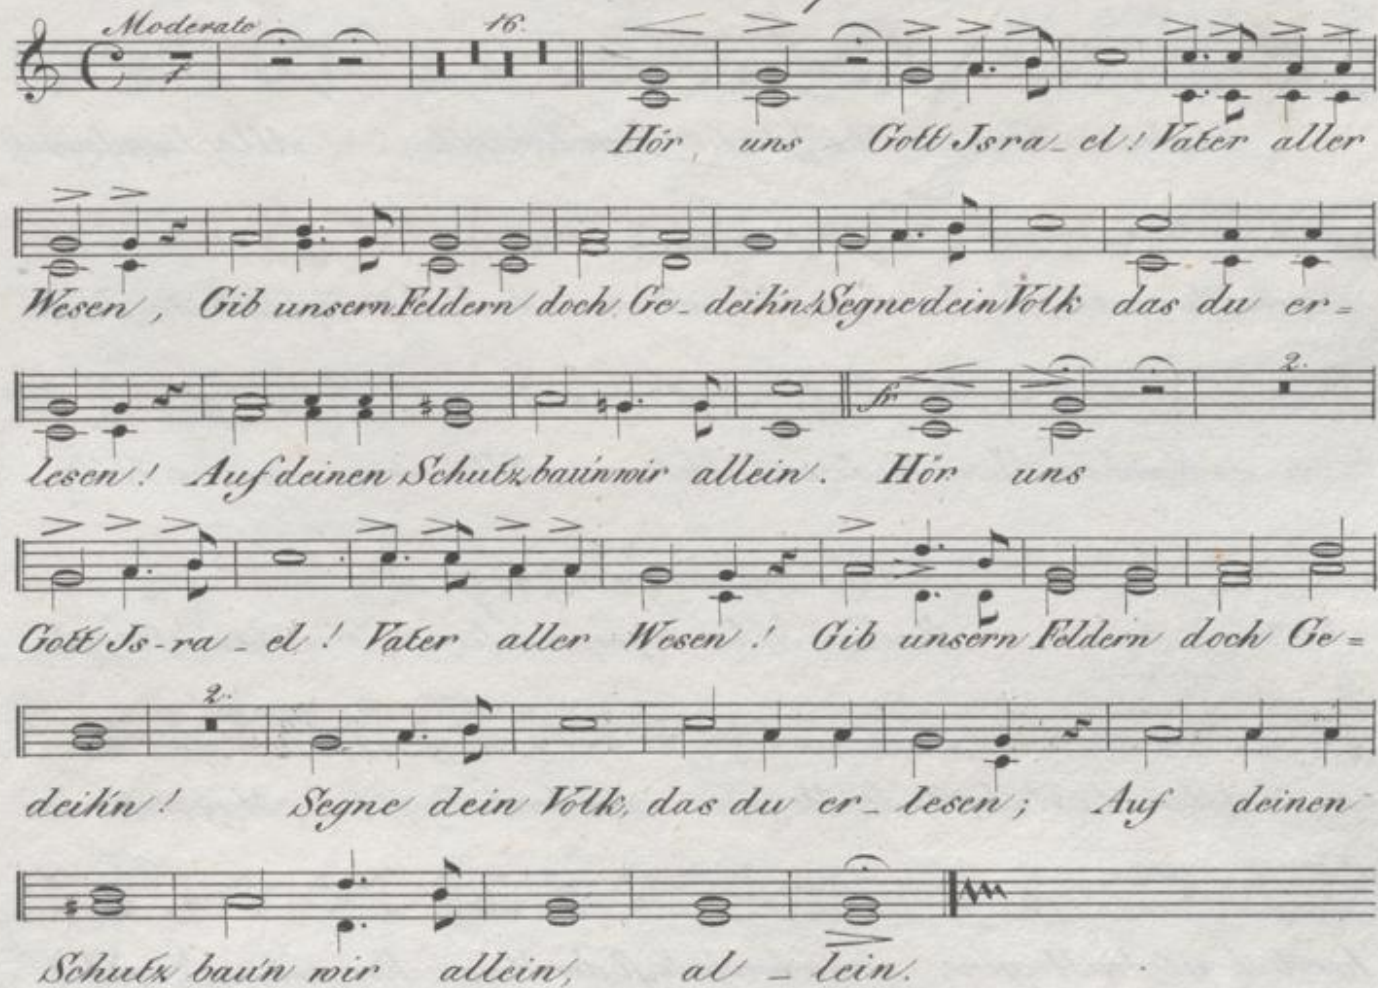 Moderato 16.
Hör uns Gott Jsra_el! Vater aller
Wesen, Gib unsern Feldern doch Ge_deih'n! Segne dein Volk das du er=
lesen! Auf deinen Schutz bau'n wir allein. Hör uns
2.
Gott Js-ra_el! Vater aller Wesen! Gib unsern Feldern doch Ge=
2.
deih'n! Segne dein Volk, das du er_lesen; Auf deinen
Schutz bau'n wir allein, al_lein.